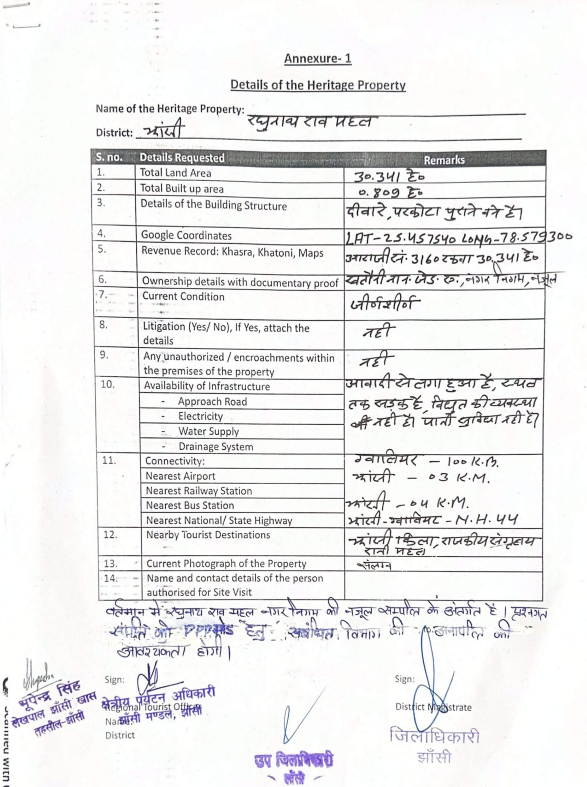 Annexure- 1
Details of the Heritage Property
Name of the Heritage Property: रघुनाथ राव महल
District: झांसी
S. no. Details Requested Remarks
1. Total Land Area 30.341 हे०
2. Total Built up area 0.809 हे०
3. Details of the Building Structure दीवारे, परकोटा पुराने बने है।
4. Google Coordinates LAT-25.457540 LONG-78.579300
5. Revenue Record: Khasra, Khatoni, Maps आराजी सं. 3160 रकवा 30.341 हे०
6. Ownership details with documentary proof खतौनी नान जेड. ए., नगर निगम, नजूल
7. Current Condition जीर्णशीर्ण
8. Litigation (Yes/ No), If Yes, attach the नही
details
9. Any unauthorized / encroachments within नही
the premises of the property
10. Availability of Infrastructure आबादी से लगा हुआ है, स्थल
- Approach Road तक सड़क है, विद्युत की व्यवस्था
- Electricity नही है। पानी सुविधा नही है।
- Water Supply
- Drainage System
11. Connectivity: ग्वालियर - 100 K.M.
Nearest Airport झांसी - 03 K.M.
Nearest Railway Station
Nearest Bus Station झांसी - 04 K.M.
Nearest National/ State Highway झांसी-ग्वालियर - N.H. 44
12. Nearby Tourist Destinations झांसी किला, राजकीय संग्रहालय
रानी महल
13. Current Photograph of the Property संलग्न
14. Name and contact details of the person
authorised for Site Visit
वर्तमान में रघुनाथ राव महल नगर निगम की नजूल सम्पत्ति के अंतर्गत है। प्रश्नगत
संपत्ति को हेतु संबंधित विभाग की अनापत्ति की
आवश्यकता होगी।
Sign: Sign:
भूपेन्द्र सिंह
लेखपाल झाँसी खास
तहसील-झाँसी
क्षेत्रीय पर्यटन अधिकारी
Regional Tourist Officer
झाँसी मण्डल, झाँसी
Name:
District
District Magistrate
जिलाधिकारी
झाँसी
उप जिलाधिकारी
झाँसी
Scanned with